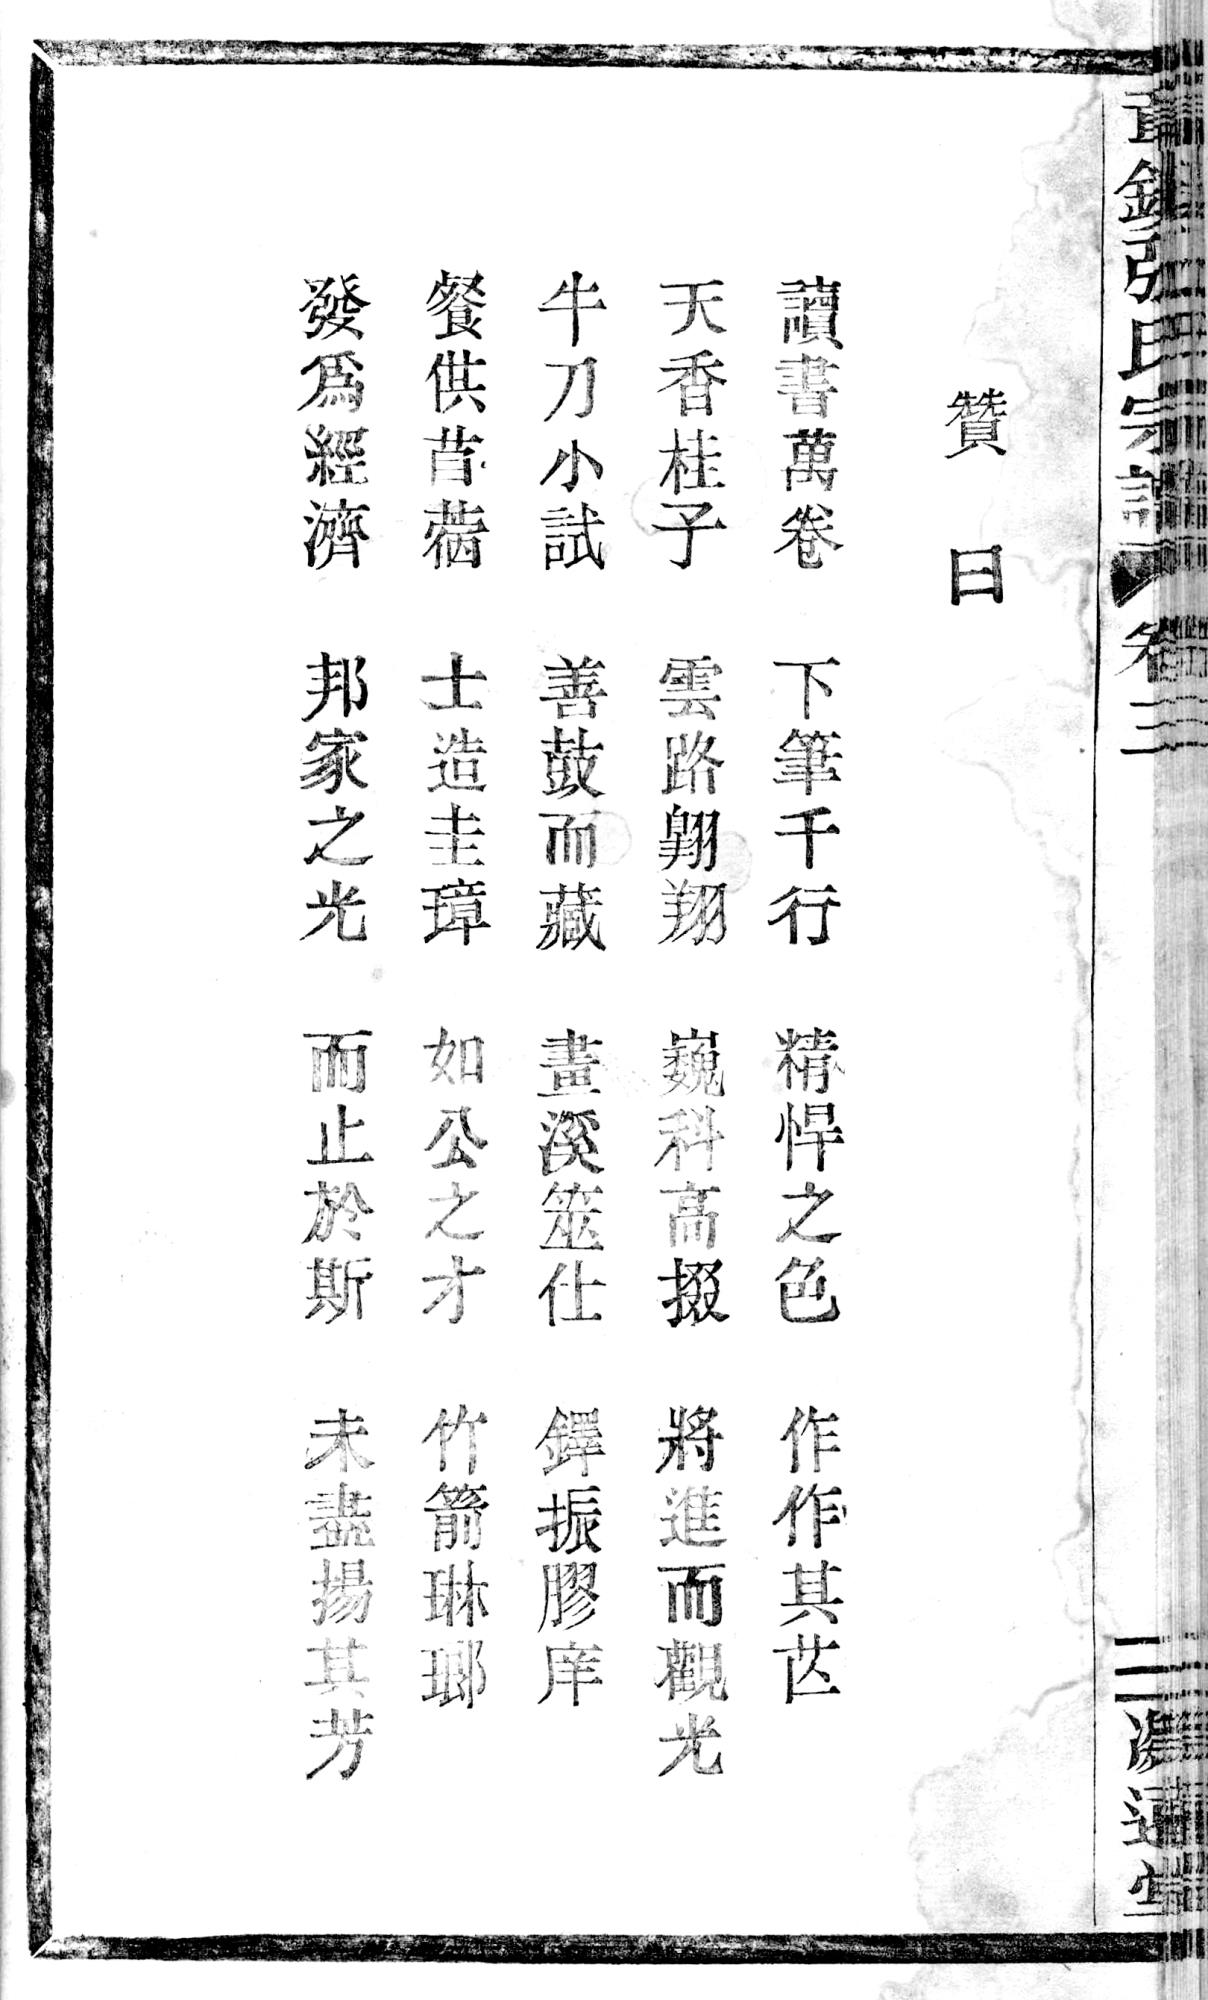 張氏宗譜 卷三
贊曰
讀書萬卷 下筆千行 精悍之色 作作其芒
天香桂子 雲路翺翔 巍科高掇 將進而觀光
牛刀小試 善鼓而藏 畫溪筮仕 鐸振膠庠
餐供苜蓿 士造圭璋 如公之才 竹箭琳瑯
發爲經濟 邦家之光 而止於斯 未盡揚其芳
二
通堂